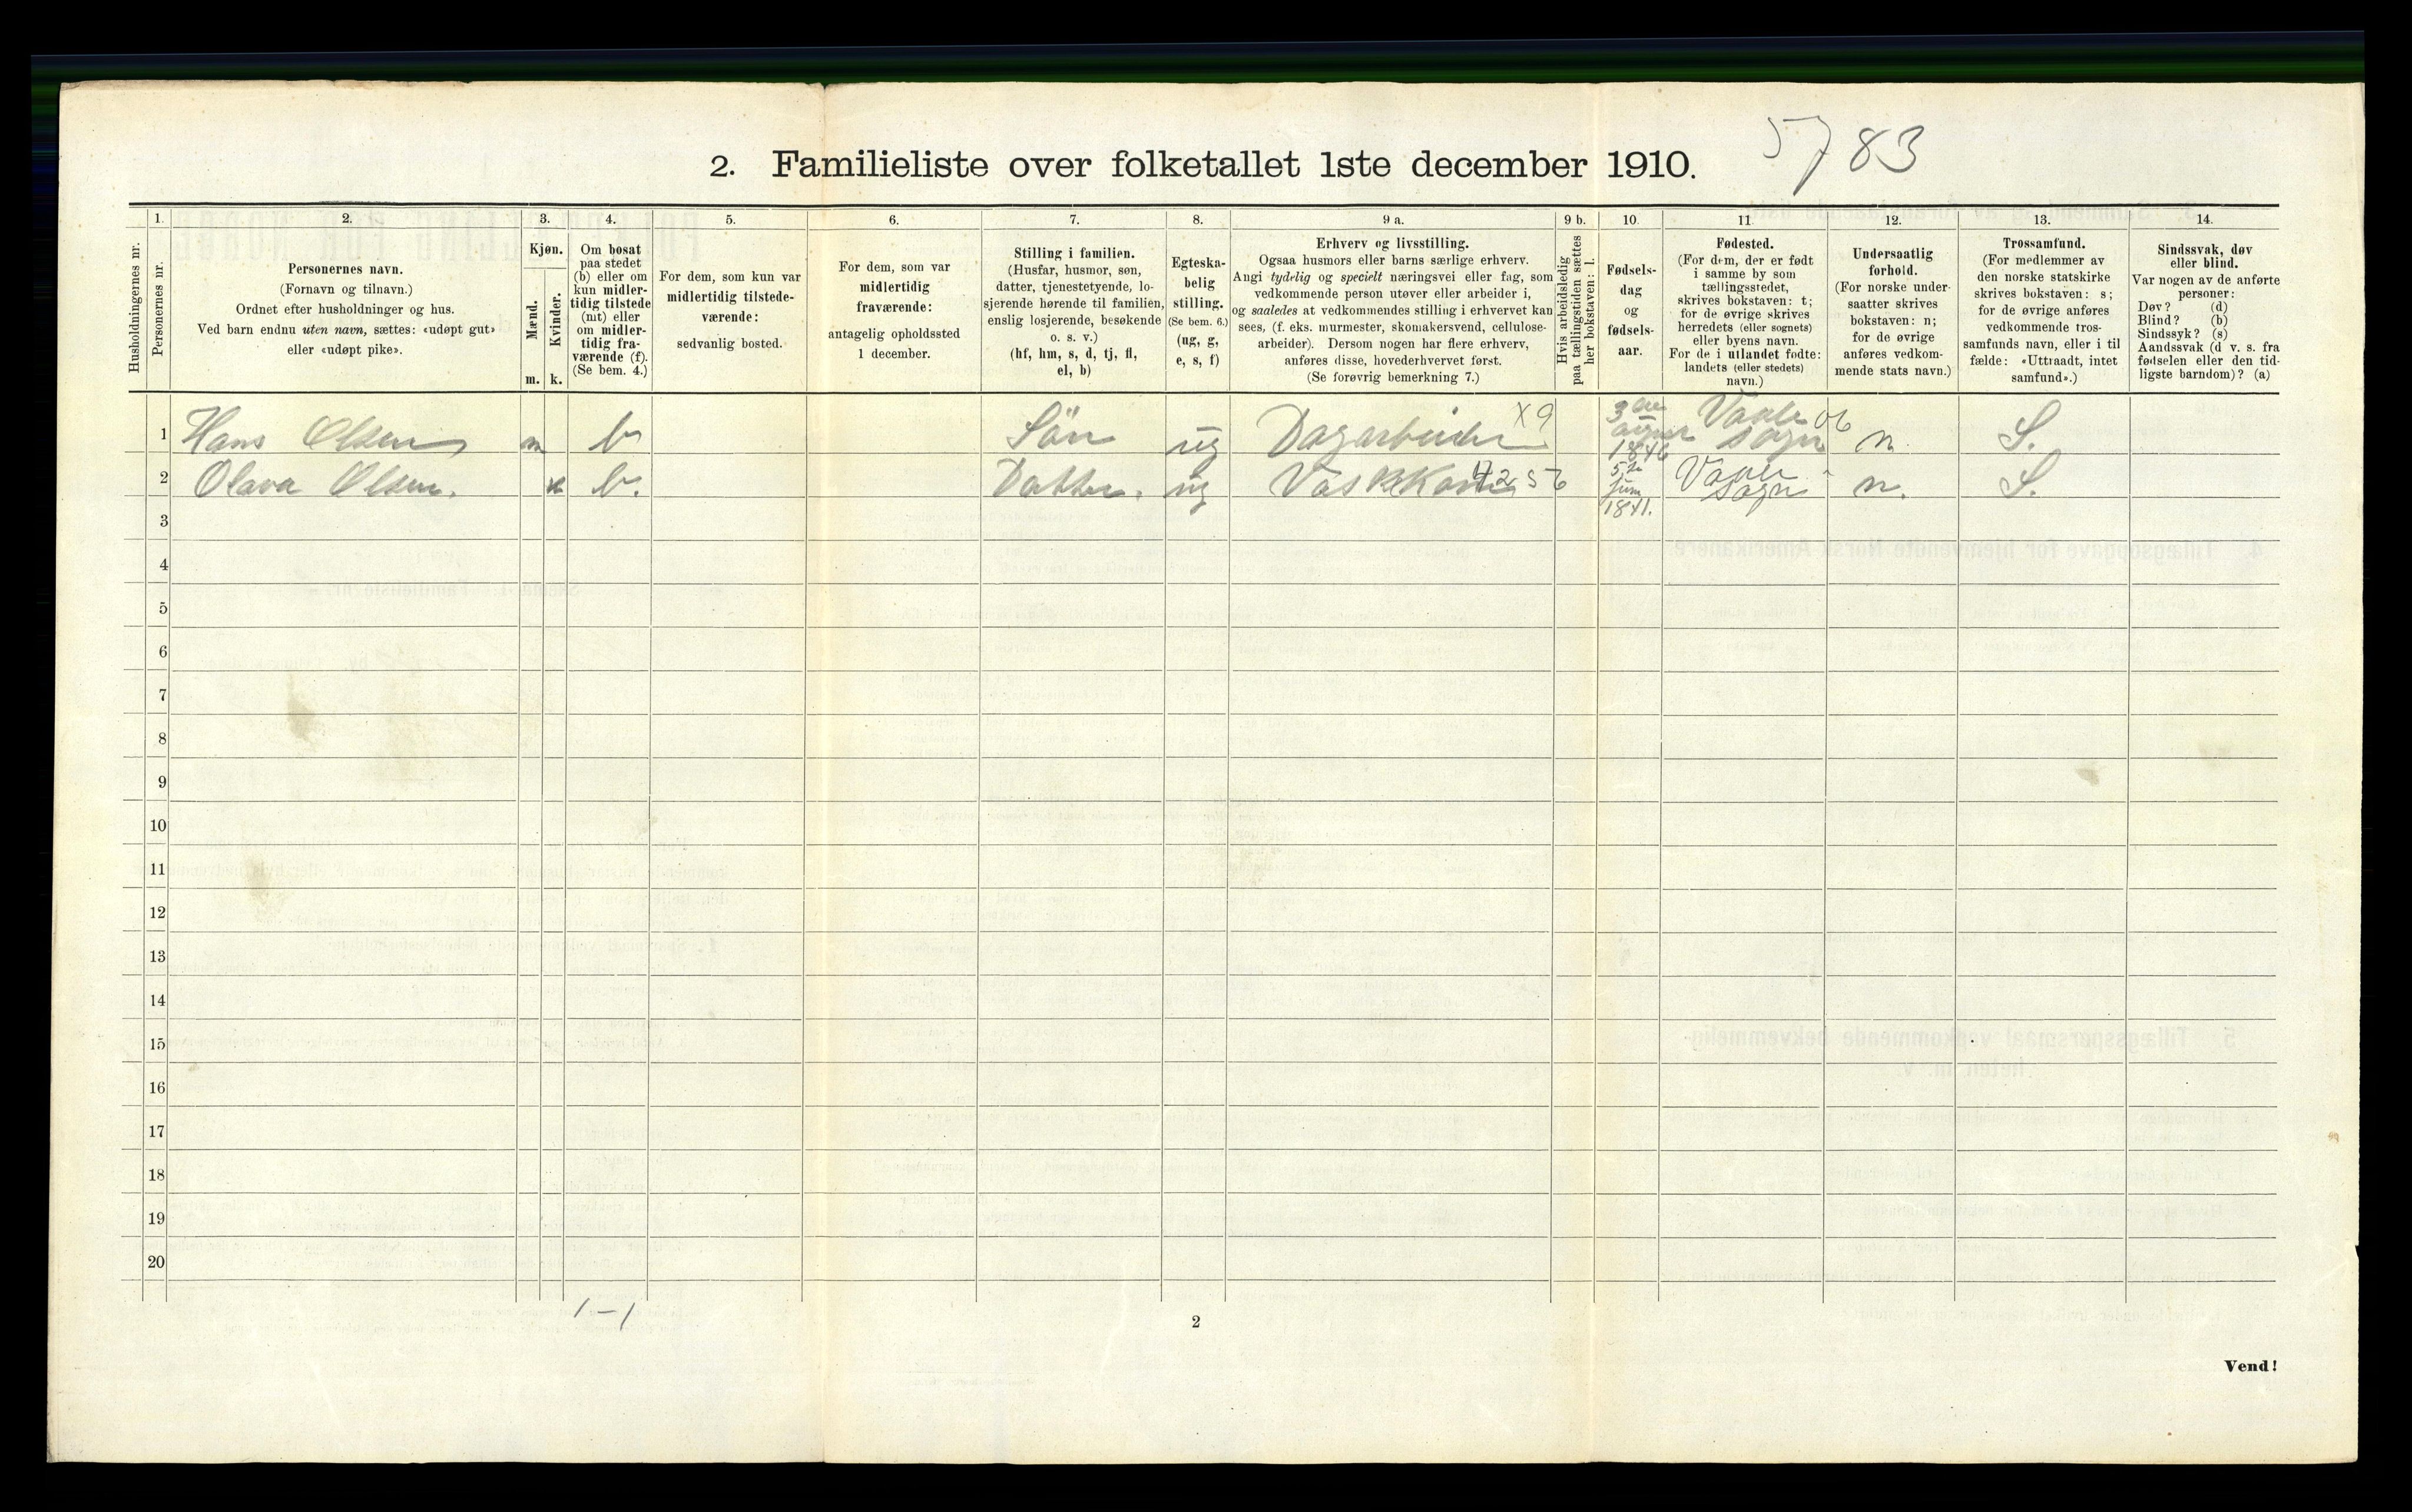 2. Familieliste over folketallet 1ste december 1910.
5783
1. 2. 3. 4. 5. 6. 7. 8. 9 a. 9 b. 10. 11. 12. 13. 14.
Husholdningernes nr.
Personernes nr.
Personernes navn.
(Fornavn og tilnavn.)
Ordnet efter husholdninger og hus.
Ved barn endnu uten navn, sættes: «udøpt gut»
eller «udøpt pike».
Kjøn.
Mænd.
Kvinder.
m. k.
Om bosat
paa stedet
(b) eller om
kun midler-
tidig tilstede
(mt) eller
om midler-
tidig fra-
værende (f).
(Se bem. 4.)
For dem, som kun var
midlertidig tilstede-
værende:
sedvanlig bosted.
For dem, som var
midlertidig
fraværende:
antagelig opholdssted
1 december.
Stilling i familien.
(Husfar, husmor, søn,
datter, tjenestetyende, lo-
sjerende hørende til familien,
enslig losjerende, besøkende
o. s. v.)
(hf, hm, s, d, tj, fl,
el, b)
Egteska-
belig
stilling.
(Se bem. 6.)
(ug, g,
e, s, f)
Erhverv og livsstilling.
Ogsaa husmors eller barns særlige erhverv.
Angi tydelig og specielt næringsvei eller fag, som
vedkommende person utøver eller arbeider i,
og saaledes at vedkommendes stilling i erhvervet kan
sees, (f. eks. murmester, skomakersvend, cellulose-
arbeider). Dersom nogen har flere erhverv,
anføres disse, hovederhvervet først.
(Se forøvrig bemerkning 7.)
Hvis arbeidsledig
paa tællingstiden sættes
her bokstaven: l.
Fødsels-
dag
og
fødsels-
aar.
Fødested.
(For dem, der er født
i samme by som
tællingsstedet,
skrives bokstaven: t;
for de øvrige skrives
herredets (eller sognets)
eller byens navn.
For de i utlandet fødte:
landets (eller stedets)
navn.)
Undersaatlig
forhold.
(For norske under-
saatter skrives
bokstaven: n;
for de øvrige
anføres vedkom-
mende stats navn.)
Trossamfund.
(For medlemmer av
den norske statskirke
skrives bokstaven: s;
for de øvrige anføres
vedkommende tros-
samfunds navn, eller i til
fælde: «Uttraadt, intet
samfund».)
Sindssvak, døv
eller blind.
Var nogen av de anførte
personer:
Døv? (d)
Blind? (b)
Sindssyk? (s)
Aandssvak (d v. s. fra
fødselen eller den tid-
ligste barndom)? (a)
1 Hans Olsen m b Sön ug Dagarbeider X9 1846 Vaale Sogn 06 n. S.
2 Olava Olsen. k b. Datter. ug Vaskkone 4256 5te Juni 1841. Vaale Sogn n. S.
3
4
5
6
7
8
9
10
11
12
13
14
15
16
17
18
19
20
1 – 1
2
Vend!